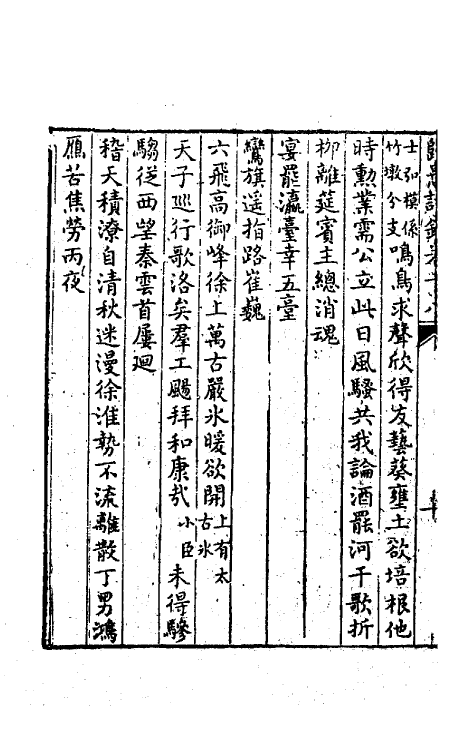 歸愚詩鈔卷十八
士弘模係竹墩分支鳴鳥求聲欣得友藝葵壅土欲培根他
時勳業需公立此日風騷共我論酒罷河干歌折
柳離筵賓主總消魂
宴罷瀛臺幸五臺
鸞旗遥指路崔巍
六飛高御峰徐上萬古嚴氷暖欲開上有太古氷
天子廵行歌洛矣羣工颺拜和康哉小臣未得驂
騶從西望秦雲首屢廻
稽天積潦自清秋迷漫徐淮勢不流離散丁男鴻
鴈苦焦勞丙夜